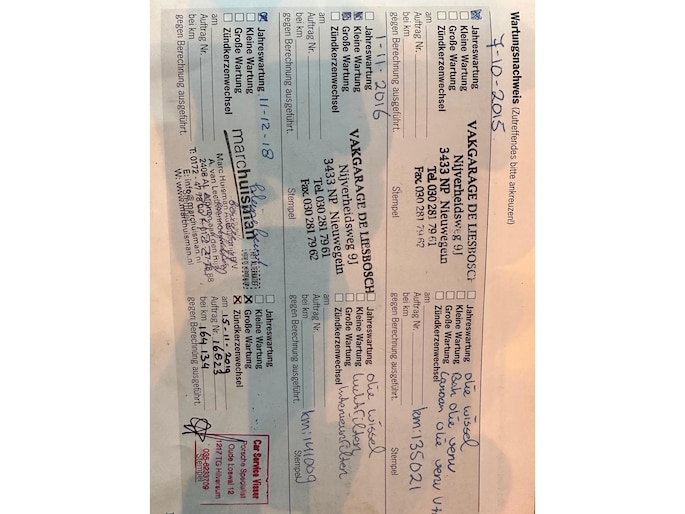 Wartungsnachweis (Zutreffendes bitte ankreuzen!)
7-10-2015
Jahreswartung
Kleine Wartung
Große Wartung
Zündkerzenwechsel
am
Auftrag Nr.
bei km
gegen Berechnung ausgeführt.
VAKGARAGE DE LIESBOSCH
Nijverheidsweg 9J
3433 NP Nieuwegein
Tel. 030 281 79 61
Fax: 030 281 79 62
Stempel
Jahreswartung
Kleine Wartung
Große Wartung
Zündkerzenwechsel
am
Auftrag Nr.
bei km
gegen Berechnung ausgeführt.
olie wissel
olie verv
olie verv
km: 135021
Stempel
Jahreswartung
Kleine Wartung
Große Wartung
Zündkerzenwechsel
1-11-2016
am
Auftrag Nr.
bei km
gegen Berechnung ausgeführt.
VAKGARAGE DE LIESBOSCH
Nijverheidsweg 9J
3433 NP Nieuwegein
Tel. 030 281 79 61
Fax: 030 281 79 62
Stempel
Jahreswartung
Kleine Wartung
Große Wartung
Zündkerzenwechsel
am
Auftrag Nr.
bei km
gegen Berechnung ausgeführt.
olie wissel
luchtfilter
Interieurfilter
km: 141009
Stempel
Jahreswartung
Kleine Wartung
Große Wartung
Zündkerzenwechsel
am
11-12-18
Auftrag Nr.
bei km
gegen Berechnung ausgeführt.
marchuisman
Marc Huisman
E: info@marchuisman.nl
W: www.marchuisman.nl
Jahreswartung
Kleine Wartung
Große Wartung
Zündkerzenwechsel
am 15-11-2019
Auftrag Nr. 16823
bei km 164.134
gegen Berechnung ausgeführt.
Car Service Visser
Porsche Specialist
Oude Loswal 12
1217 TG Hilversum
035-6233709
Stempel